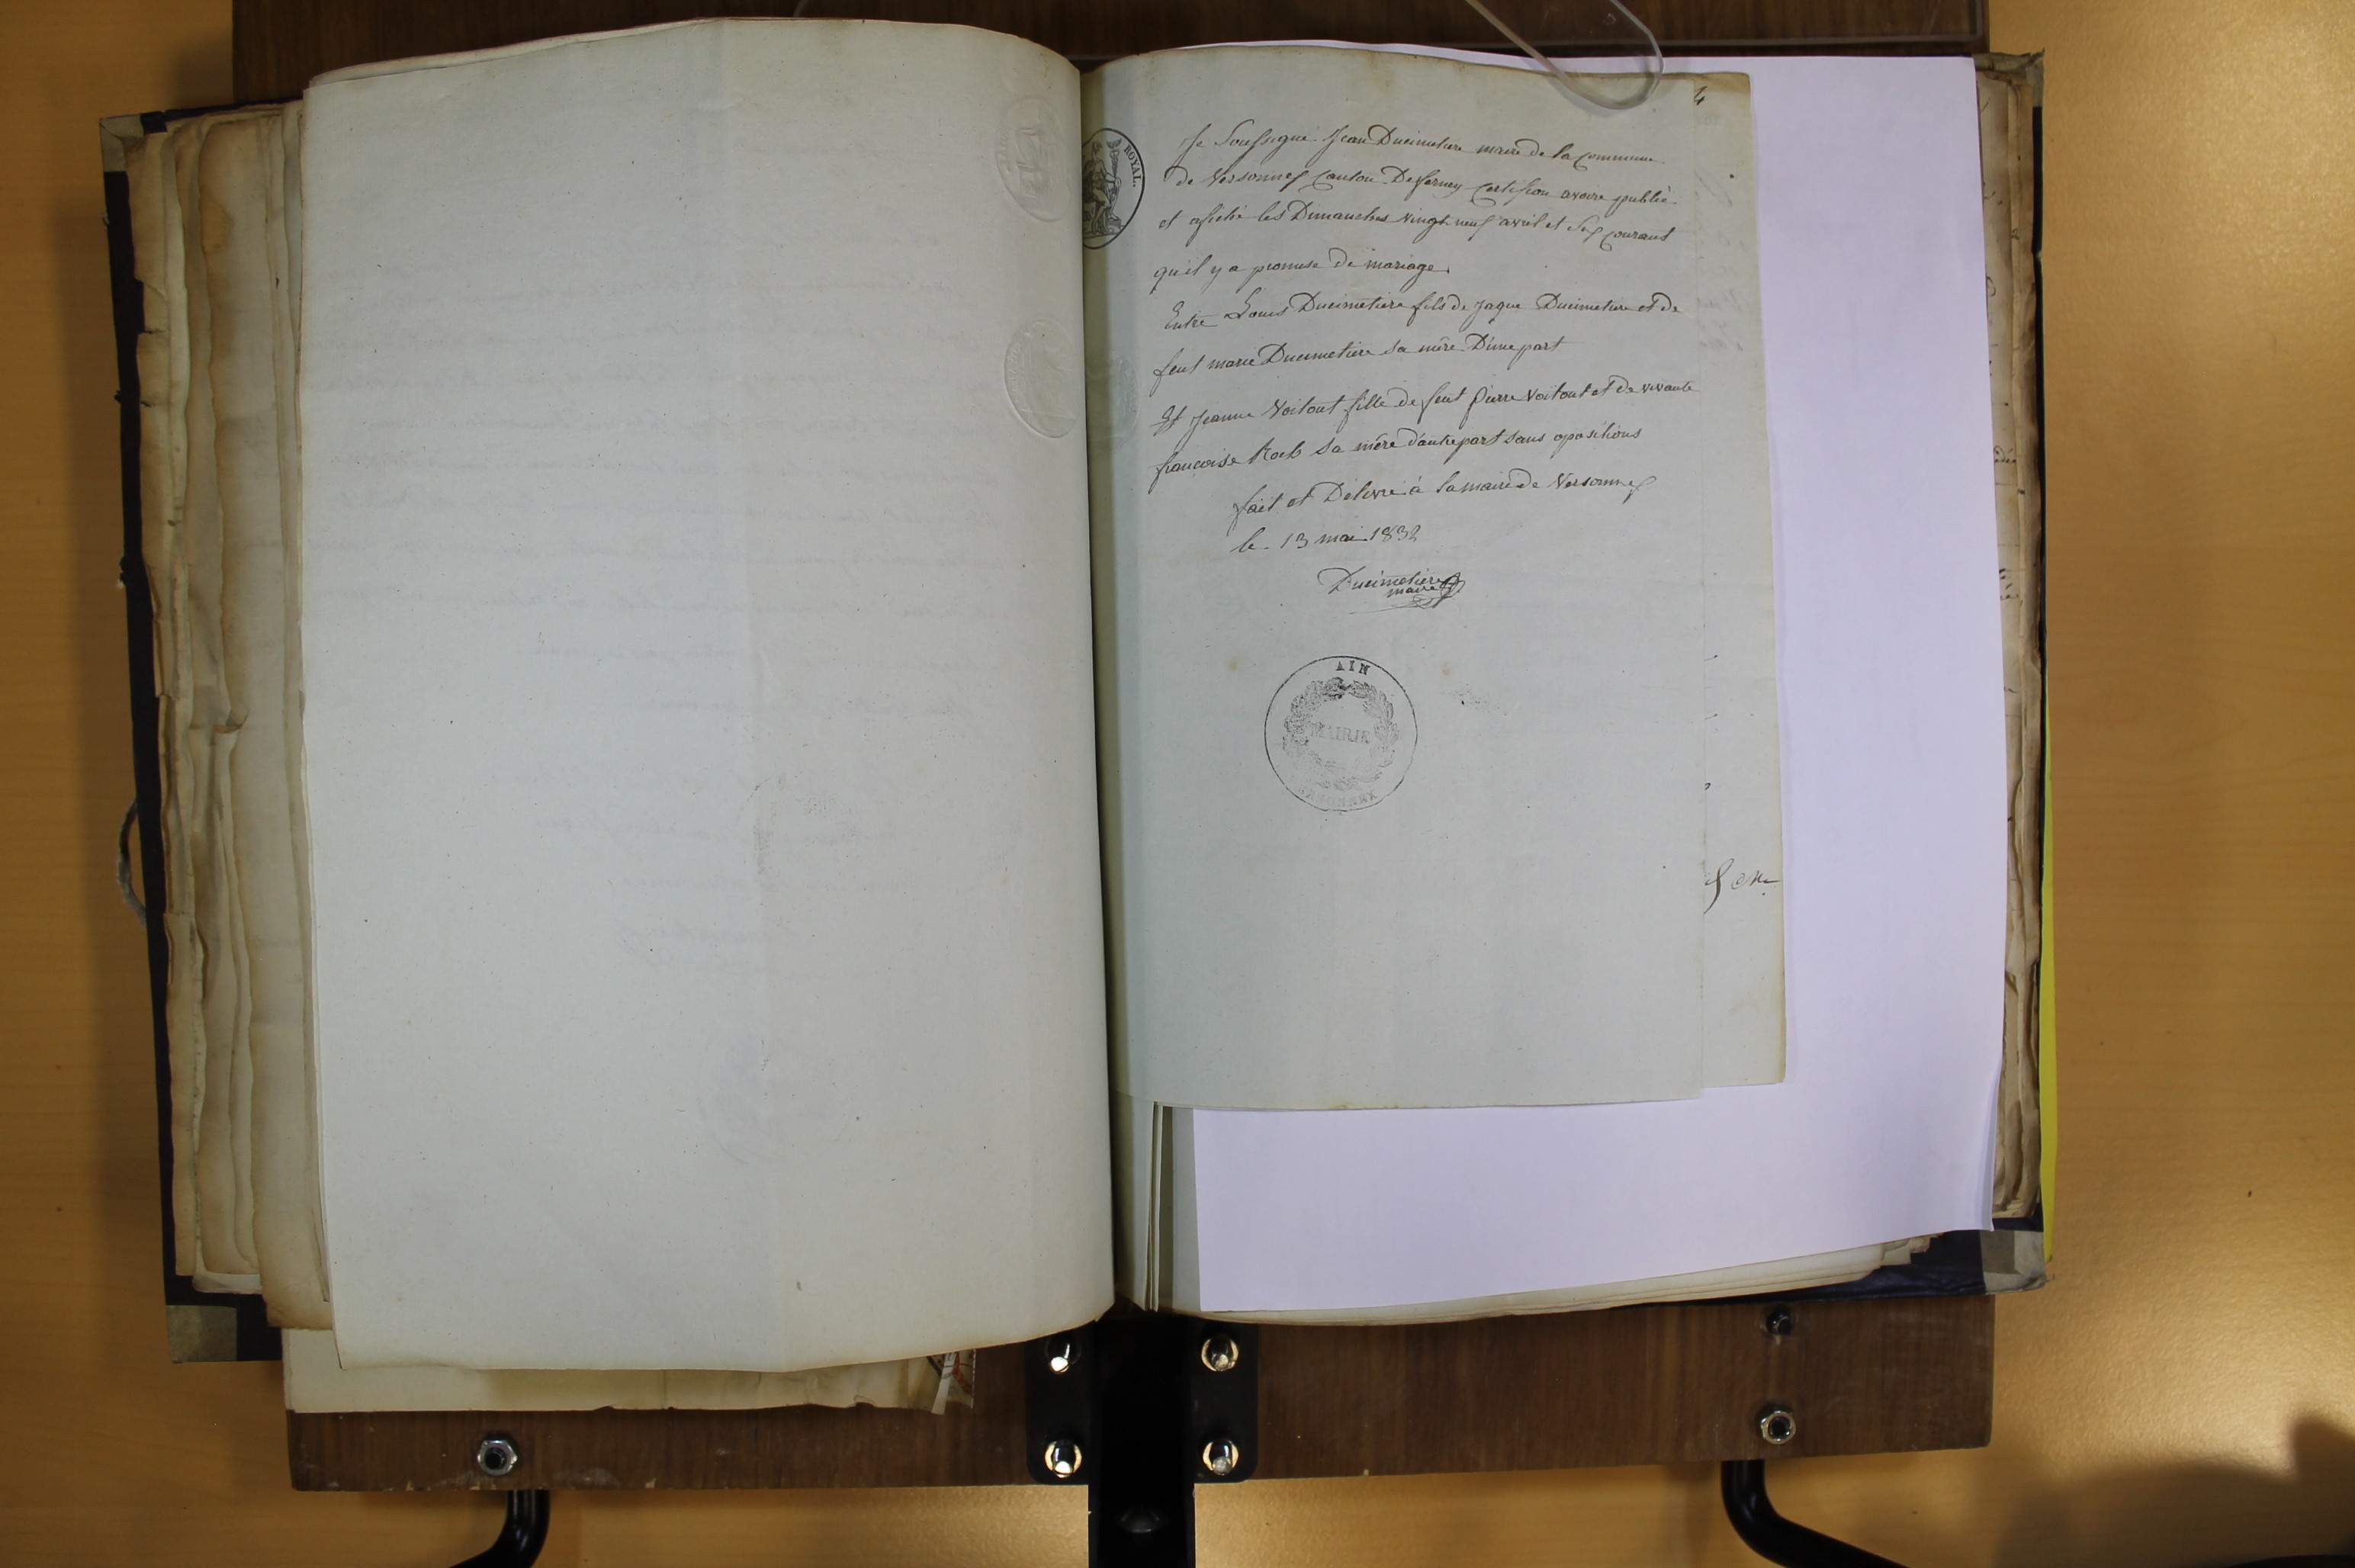 4
ROYAL.
Je Soussigné Jean Ducimetiere maire de la Commune
de Versonnex Canton De ferney Certifion avoire publié
et afiché les Dimanches vingt neuf avril et Six Courant
qu'il y a promese de mariage.
Entre Louis Ducimetiere fils de Jaque Ducimetiere et de
feut marie Ducimetiere sa mère D'une part
Et Jeanne Voitout fille de feut Pierre Voitout et de vivante
francoise Roch sa mère d'autre part sans opositions
fait et Délivré à la mairie de Versonnex
le 13 mai 1832
Ducimetiere
maire
AIN
MAIRIE